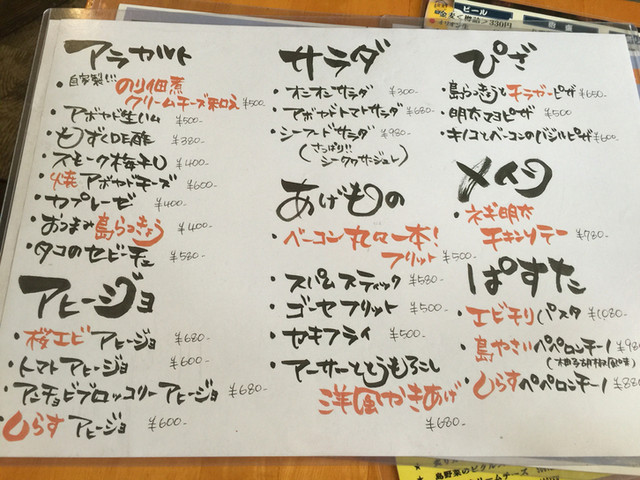 アラカルト
・自家製!!! のり佃煮
クリームチーズ和え ¥500-
・アボカド生ハム ¥500-
・もずくDE酢 ¥380-
・スモーク梅干し ¥400-
・焼アボカドチーズ ¥600-
・カプレーゼ ¥400-
・おつまみ島らっきょう ¥400-
・タコのセビーチェ ¥580-
アヒージョ
・桜エビアヒージョ ¥680-
・トマトアヒージョ ¥600-
・アンチョビブロッコリーアヒージョ ¥680-
・しらすアヒージョ ¥600-
サラダ
・オニオンサラダ ¥300-
・アボカドトマトサラダ ¥680-
・シーフードサラダ ¥980-
(さっぱり!!
シークヮサージュレ)
あげもの
・ベーコン丸々一本!
フリット ¥580-
・スパムスティック ¥580-
・ゴーヤフリット ¥500-
・セキフライ ¥500-
・アーサーととうもろこし
洋風かきあげ
¥680-
ぴざ
・島らっきょうとチラガーピザ ¥650-
・明太マヨピザ ¥500
・キノコとベーコンのバジルピザ ¥600-
メイン
・ネギ明太
チキンソテー ¥780-
ぱすた
・エビチリパスタ ¥1,080-
・島やさいペペロンチーノ ¥98
(柚子胡椒風味)
・しらすペペロンチーノ ¥880
ビール
¥330円
島野菜のピクル